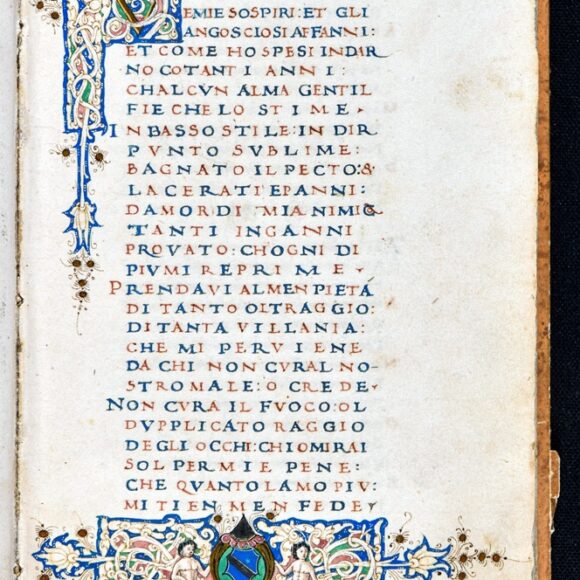 EMIE SOSPIRI: ET GLI
ANGOSCIOSI AFFANNI:
ET COME HO SPESI INDAR
NO COTANTI ANNI:
CHALCVN ALMA GENTIL
FIE CHE LO STIME·
IN BASSO STILE: IN DIR
PVNTO SVBLIME:
BAGNATO IL PECTO: &
LACERATI EPANNI:
DAMOR DI MIA NIMIC
TANTI INGANNI
PROVATO: CHOGNI DI
PIV MI REPRIME·
PRENDAVI ALMEN PIETA
DI TANTO OLTRAGGIO:
DI TANTA VILLANIA:
CHE MI PERVIENE
DA CHI NON CVRAL NO-
STRO MALE: O CREDE·
NON CVRA IL FVOCO: OL
DVPPLICATO RAGGIO
DEGLI OCCHI: CHIO MIRAI
SOL PER MIE PENE:
CHE QVANTO LAMO PIV:
MI TIEN MEN FEDE·